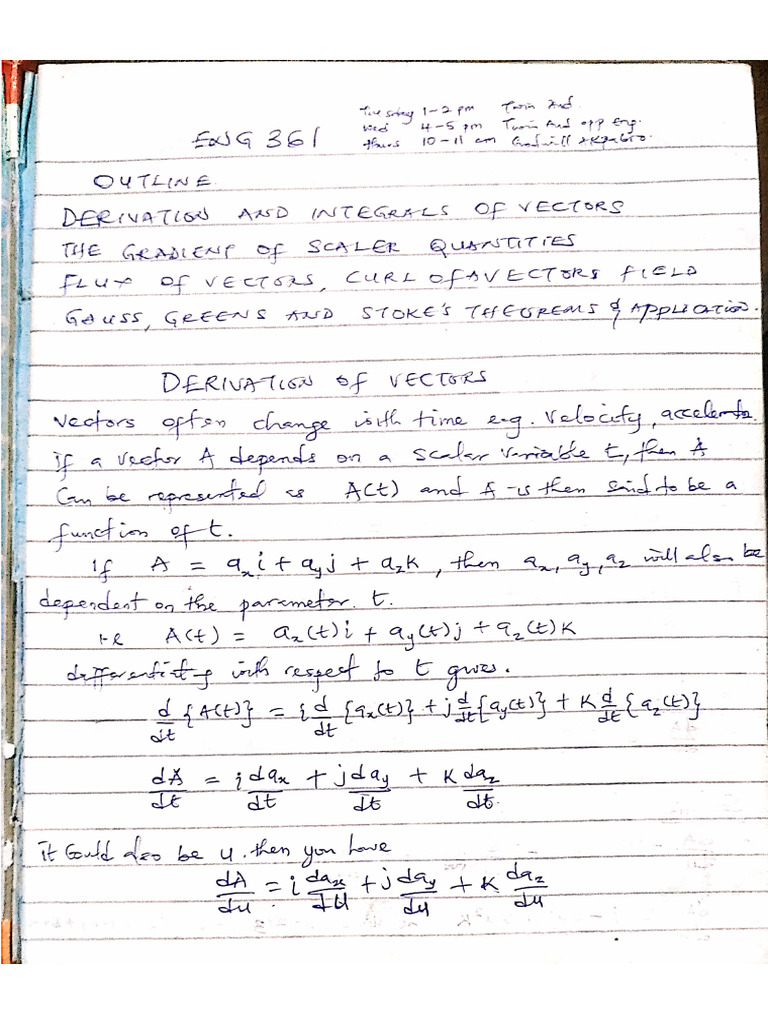 Tuesday 1-2 pm Twin And.
Wed 4-5 pm Twin And opp Eng.
ENG 361
thurs 10-11 am Goodwill
OUTLINE
DERIVATION AND INTEGRALS OF VECTORS
THE GRADIENT OF SCALER QUANTITIES
FLUX OF VECTORS, CURL OF A VECTORS FIELD
GAUSS, GREENS AND STOKE'S THEOREMS & APPLICATION.
DERIVATION OF VECTORS
Vectors often change with time e.g. Velocity,
if a vector A depends on a scalar variable t, then A
Can be represented as A(t) and A is then said to be a
function of t.
If A = aₓi + a_yj + a_zk, then aₓ, a_y, a_z will also be
dependent on the parameter t.
i.e A(t) = aₓ(t)i + a_y(t)j + a_z(t)k
with respect to t gives.
d/dt {A(t)} = i d/dt {aₓ(t)} + j d/dt {a_y(t)} + k d/dt {a_z(t)}
dA/dt = i daₓ/dt + j da_y/dt + k da_z/dt
it could also be u. then you have
dA/du = i daₓ/du + j da_y/du + k da_z/du